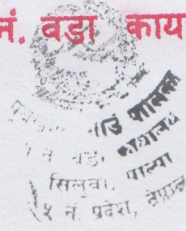 नं. वडा काय
गाउँ पालिका
नं. वडा कार्यालय
सिलुवा, पाल्पा
५ नं. प्रदेश, नेपाल